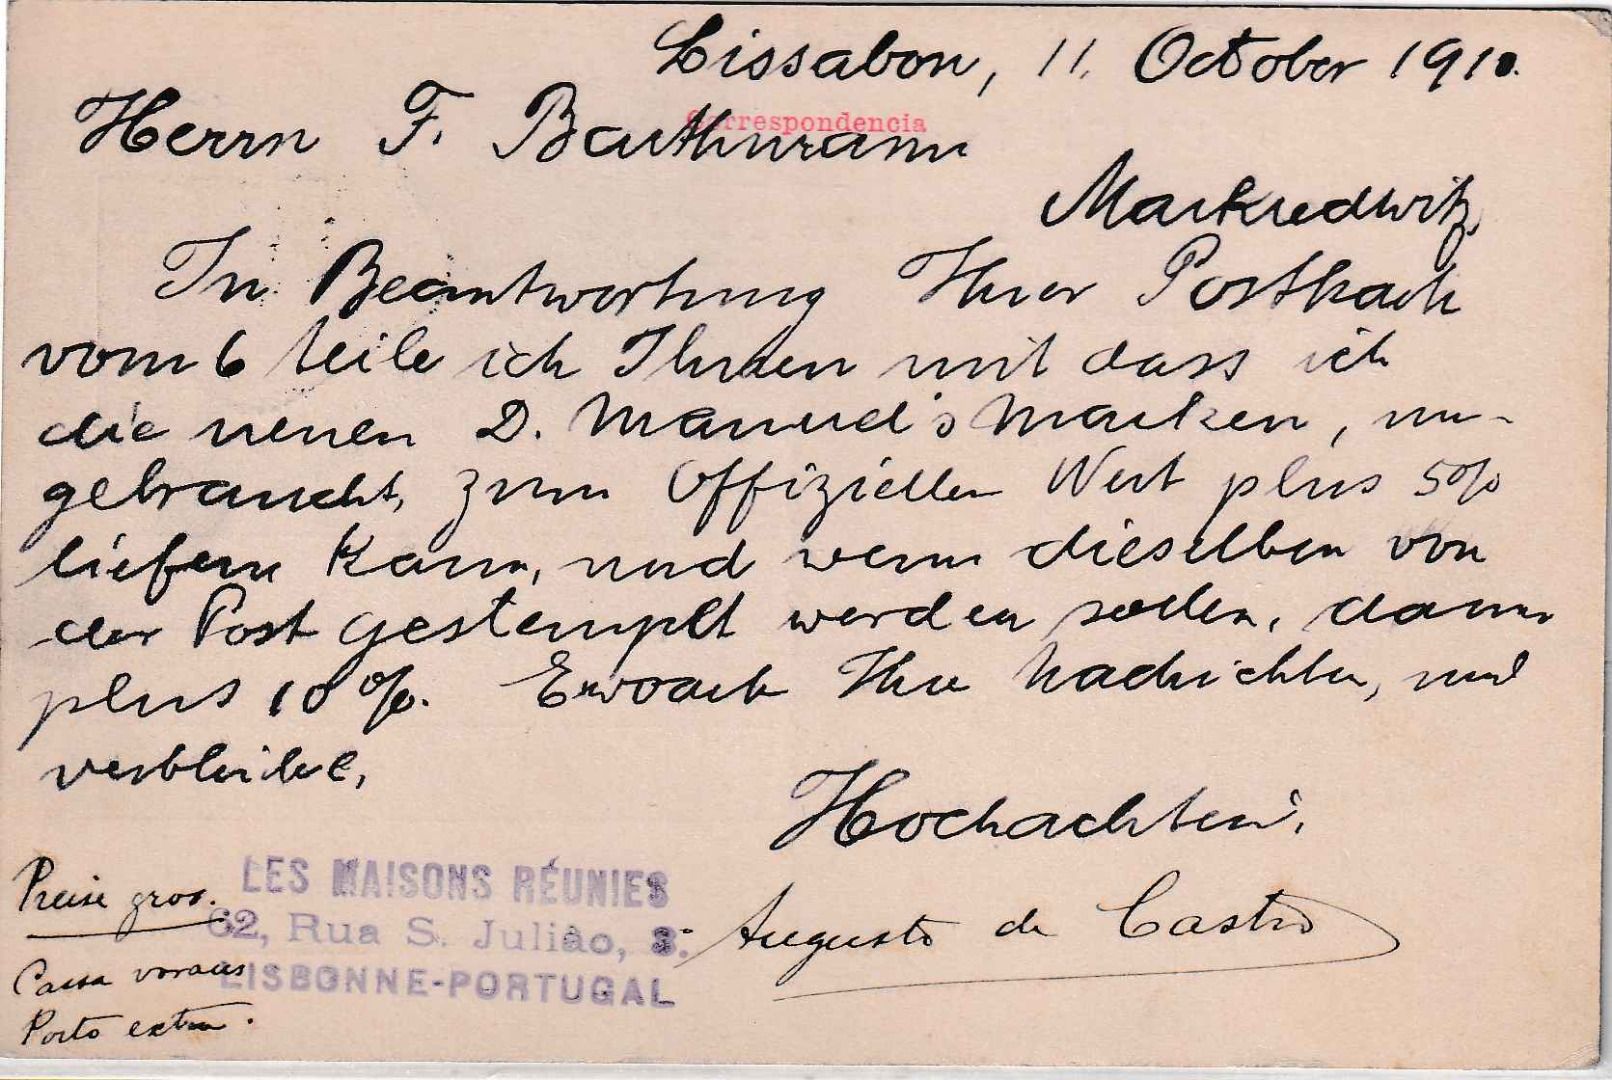 Lissabon, 11. October 1910.
Correspondencia
Herrn F. Barthmann
Markredwitz,
In Beantwortung Ihrer Postkarte
vom 6 teile ich Ihnen mit dass ich
die neuen D. Manuel's Marken, un-
gebraucht, zum Offiziellen Wert plus 5%
liefern kann, und wenn dieselben von
der Post gestempelt werden sollen, dann
plus 10%. Erwarte Ihre Nachrichten, und
verbleibe,
Hochachtend.
Augusto de Castro
Preise
LES MAISONS RÉUNIES
62, Rua S. Julião, 3.º
LISBONNE-PORTUGAL
Cassa voraus
Porto extra.